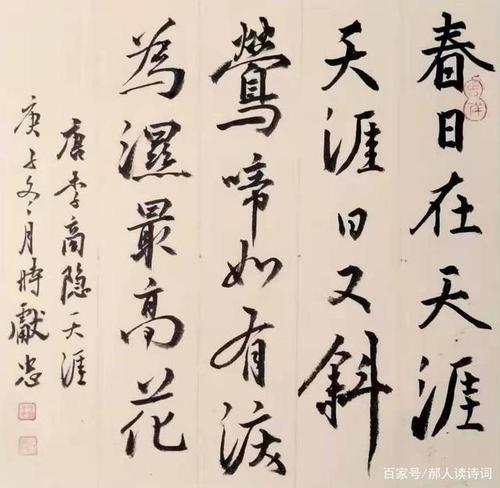 春日在天涯
天涯日又斜
鶯啼如有淚
為濕最高花
唐李商隐天涯
庚子冬月時獻忠
百家号/郝人读诗词